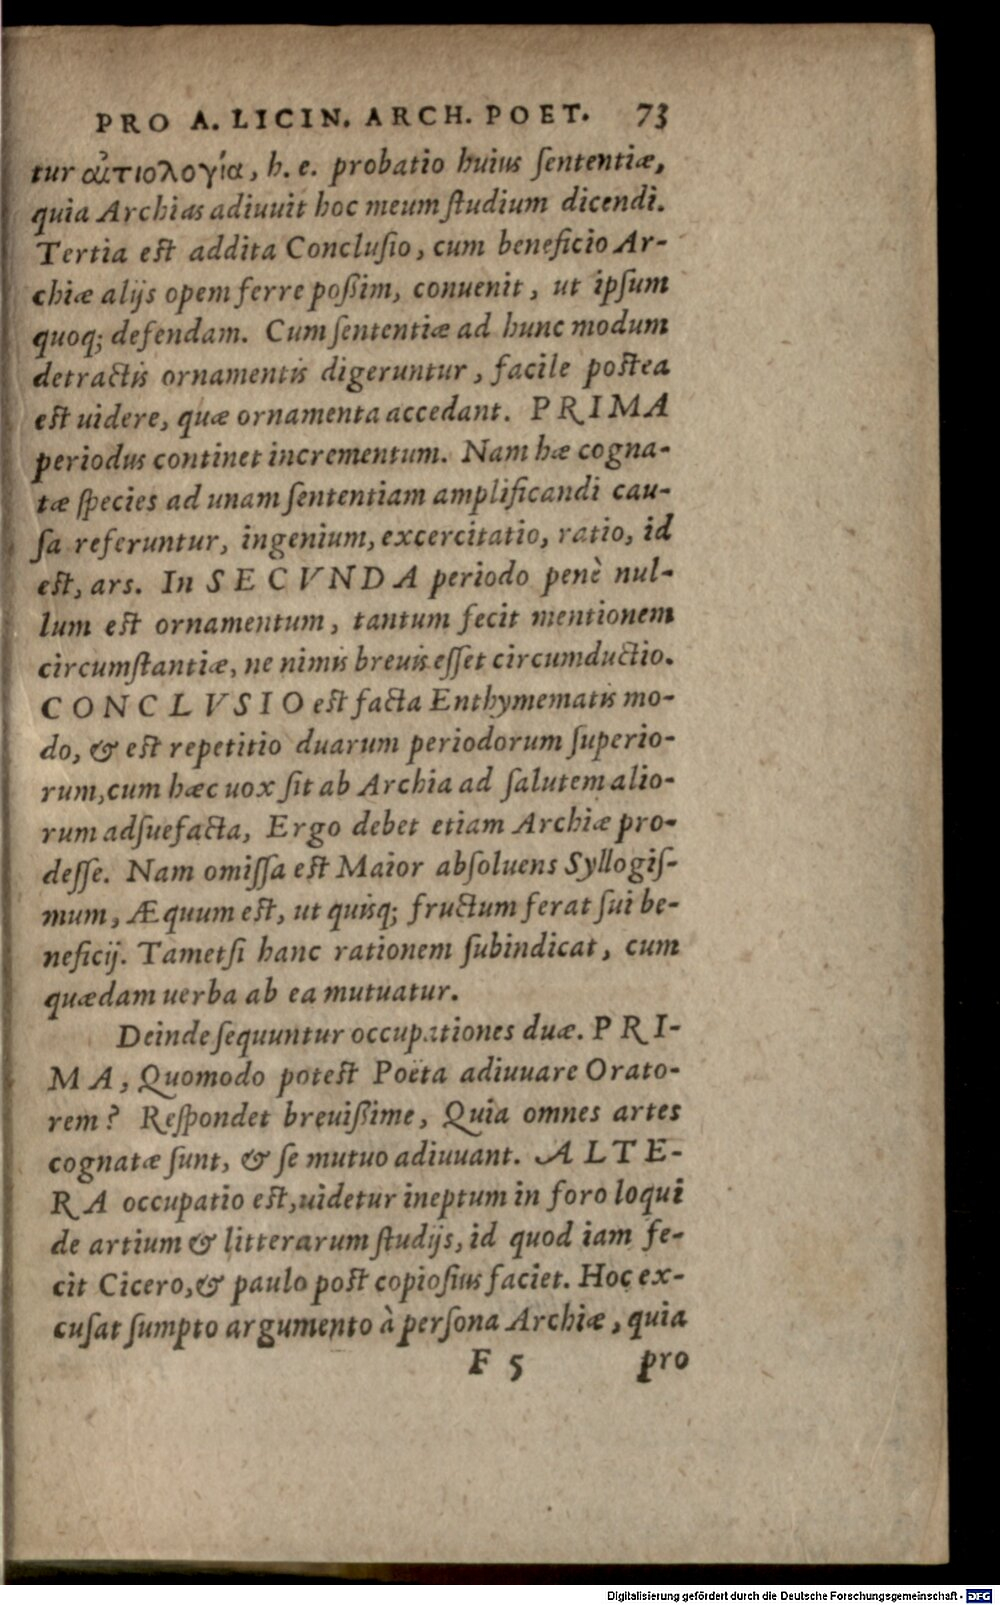 PRO A. LICIN. ARCH. POET. 73
tur αἰτιολογία, h. e. probatio huius ſententiæ,
quia Archias adiuuit hoc meum ſtudium dicendi.
Tertia eſt addita Concluſio, cum beneficio Ar-
chiæ alijs opem ferre poßim, conuenit, ut ipſum
quoq; defendam. Cum ſententiæ ad hunc modum
detractis ornamentis digeruntur, facile poſtea
eſt uidere, quæ ornamenta accedant. PRIMA
periodus continet incrementum. Nam hæ cogna-
tæ ſpecies ad unam ſententiam amplificandi cau-
ſa referuntur, ingenium, excercitatio, ratio, id
eſt, ars. In SECVNDA periodo penè nul-
lum eſt ornamentum, tantum fecit mentionem
circumſtantiæ, ne nimis breuis eſſet circumductio.
CONCLVSIO eſt facta Enthymematis mo-
do, & eſt repetitio duarum periodorum ſuperio-
rum, cum hæc uox ſit ab Archia ad ſalutem alio-
rum adſuefacta, Ergo debet etiam Archiæ pro-
deſſe. Nam omiſſa eſt Maior abſoluens Syllogiſ-
mum, Æquum eſt, ut quisq; fructum ferat ſui be-
neficij. Tametſi hanc rationem ſubindicat, cum
quædam uerba ab ea mutuatur.
Deinde ſequuntur occupationes duæ. PRI-
MA, Quomodo poteſt Poëta adiuuare Orato-
rem? Reſpondet breuißime, Quia omnes artes
cognatæ ſunt, & ſe mutuo adiuuant. ALTE-
RA occupatio eſt, uidetur ineptum in foro loqui
de artium & litterarum ſtudijs, id quod iam fe-
cit Cicero, & paulo poſt copioſius faciet. Hoc ex-
cuſat ſumpto argumento à perſona Archiæ, quia
F 5 pro
Digitalisierung gefördert durch die Deutsche Forschungsgemeinschaft - DFG